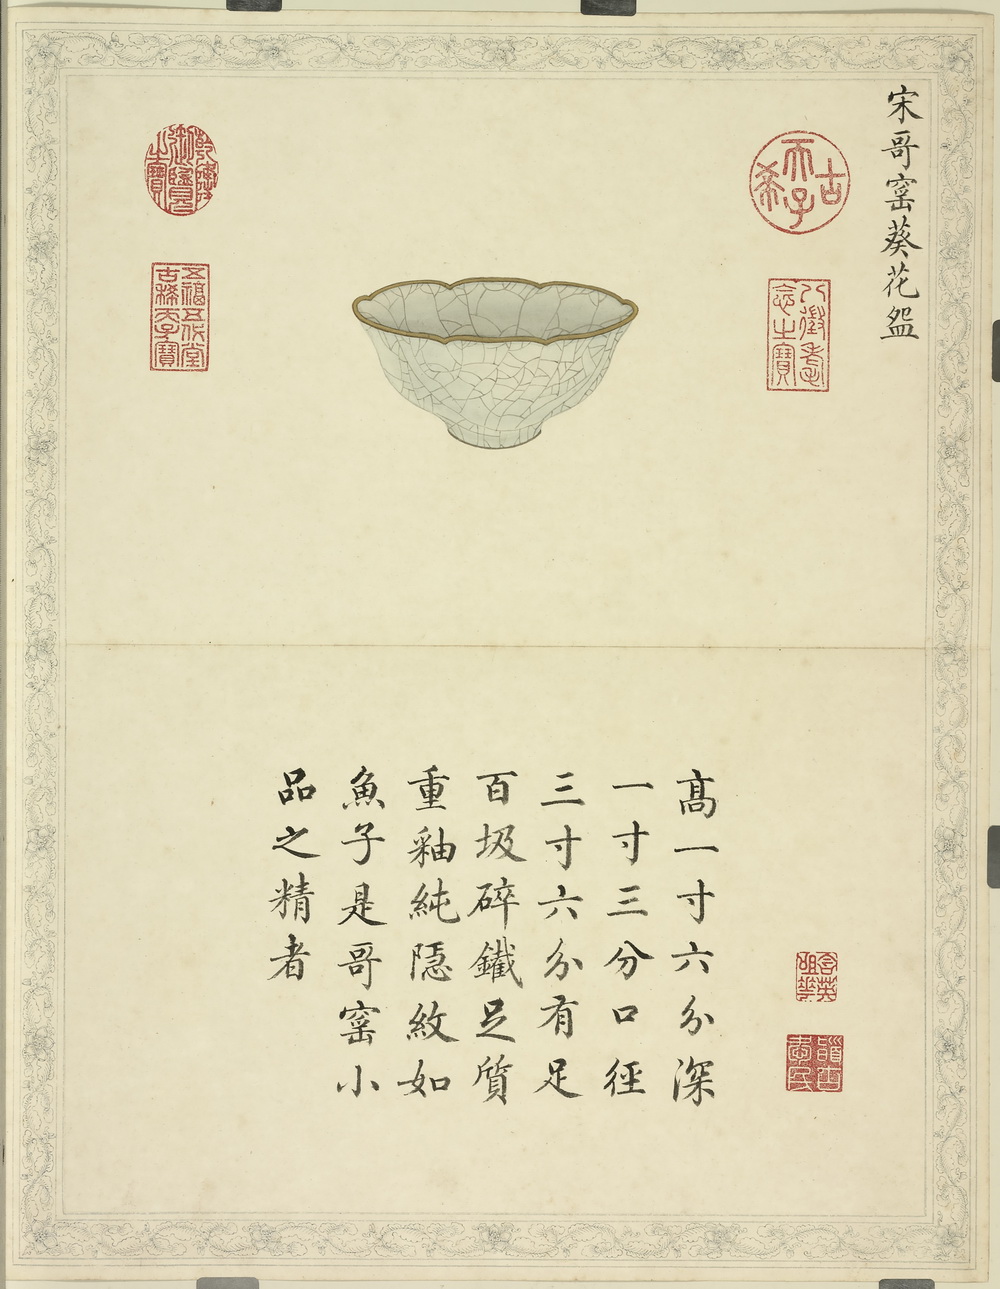 宋哥窰葵花盌
古希天子
八徵耄念之寶
乾隆御覽之寶
五福五代堂古稀天子寶
高一寸六分深
一寸三分口徑
三寸六分有足
百圾碎鐵足質
重釉純隱紋如
魚子是哥窰小
品之精者
含英咀華